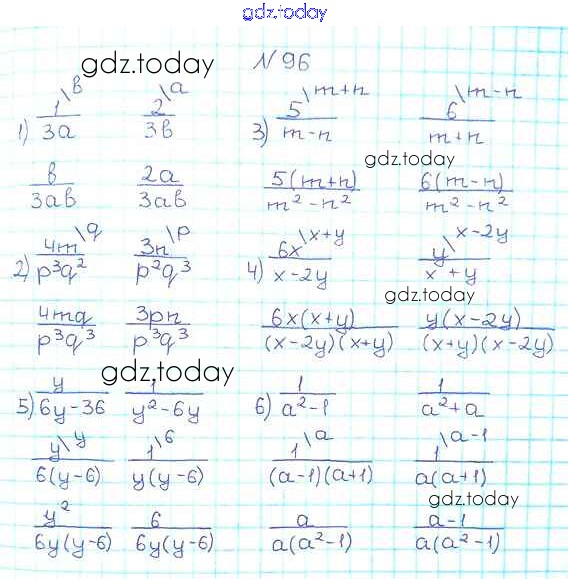 gdz.today
gdz.today
N 96
1) 1\в/3а 2\а/3в
в/3ав 2а/3ав
2) 4m\q/p³q² 3n\p/p²q³
4mq/p³q³ 3pn/p³q³
3) 5\m+n/m-n 6\m-n/m+n
gdz.today
5(m+n)/m²-n² 6(m-n)/m²-n²
4) 6x\x+y/x-2y y\x-2y/x+y
gdz.today
6x(x+y)/(x-2y)(x+y) y(x-2y)/(x+y)(x-2y)
gdz.today
5) y/6y-36 1/y²-6y
y\y/6(y-6) 1\6/y(y-6)
y²/6y(y-6) 6/6y(y-6)
6) 1/a²-1 1/a²+a
1\a/(a-1)(a+1) 1\a-1/a(a+1)
gdz.today
a/a(a²-1) a-1/a(a²-1)